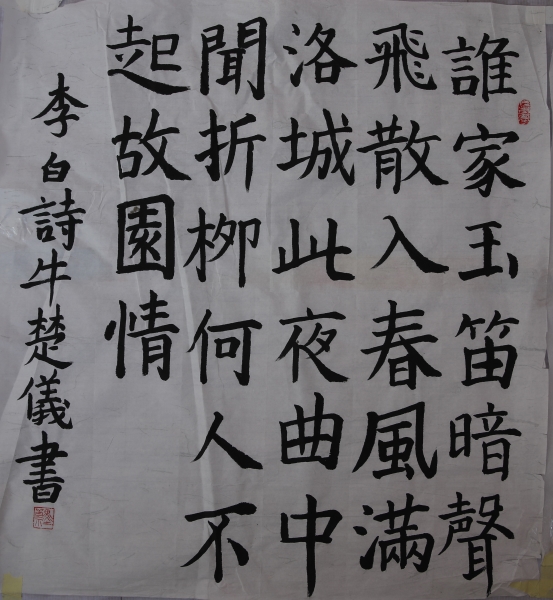 誰家玉笛暗聲
飛散入春風滿
洛城此夜曲中
聞折柳何人不
起故園情
李白詩牛楚儀書